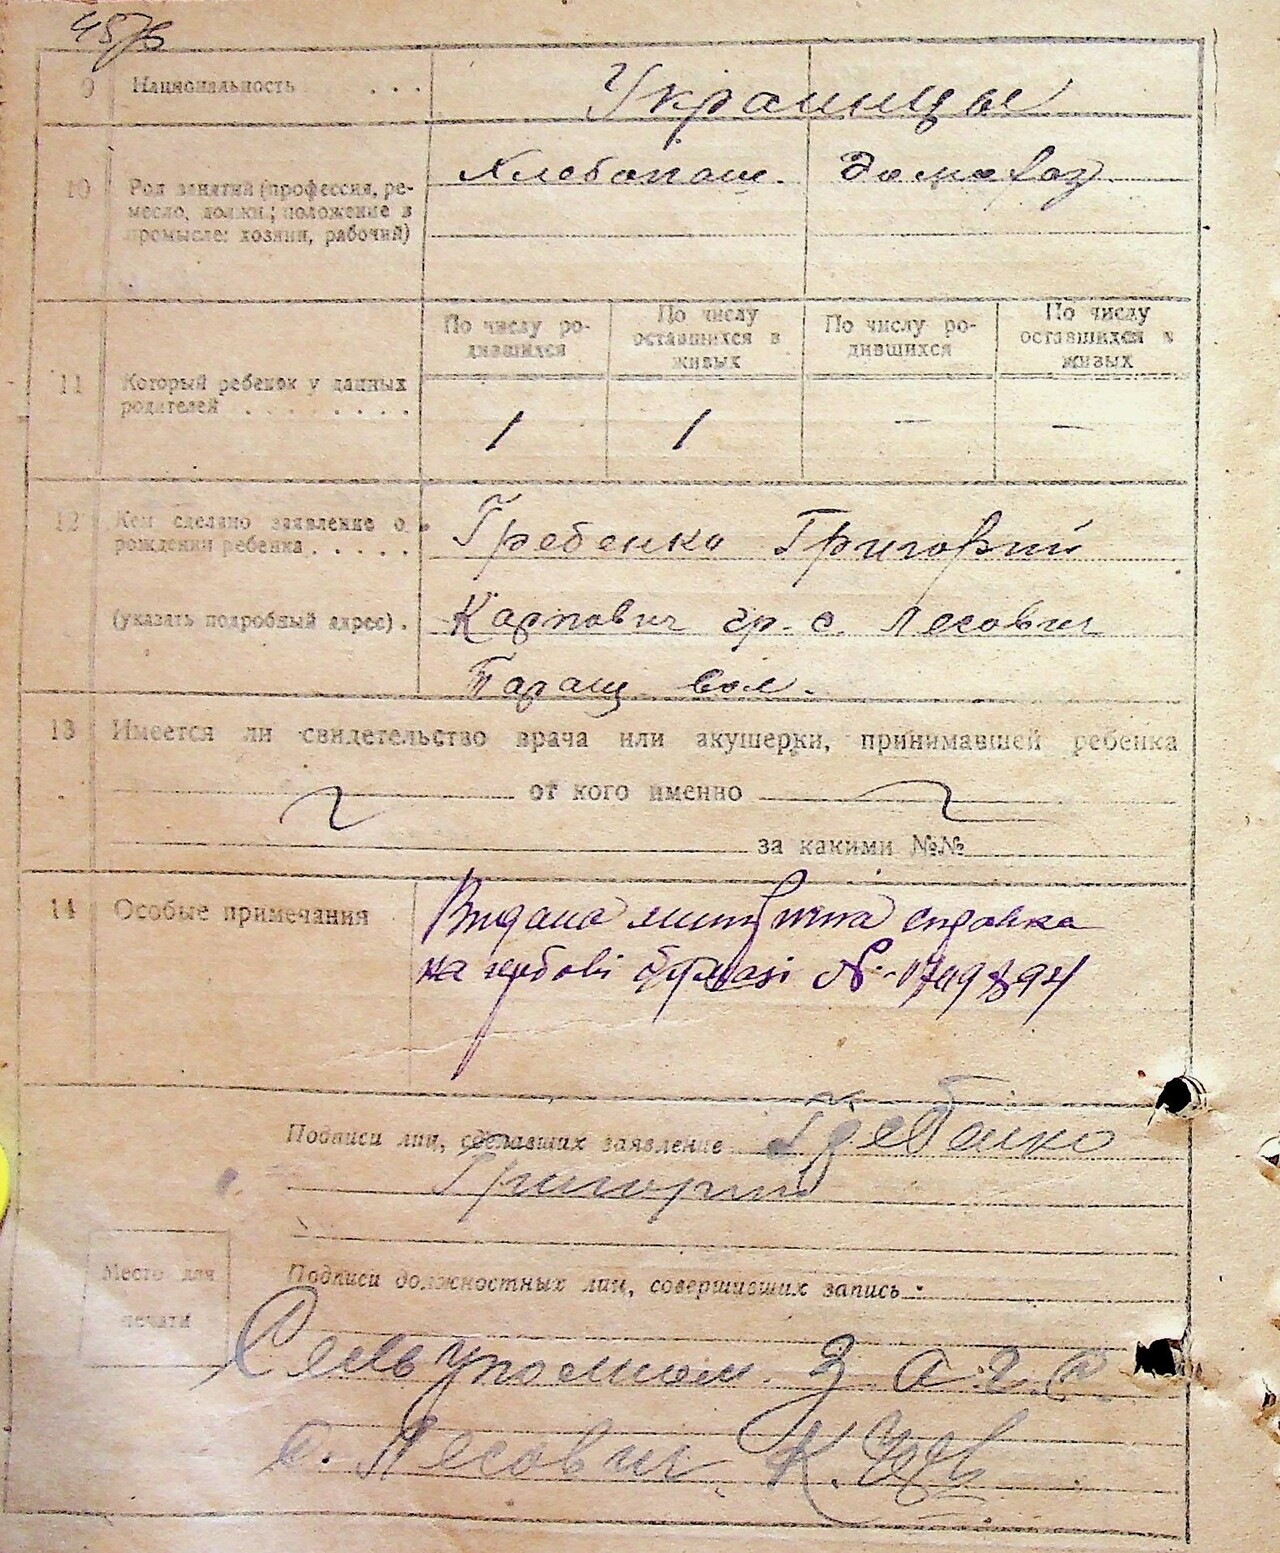 457
9 Национальность . . . Украинцы
10 Род занятий (профессия, ре- Хлебопаш. домохоз.
месло, должн.; положение в
промысле: хозяин, рабочий)
По числу ро- По числу По числу ро- По числу
дившихся оставшихся в дившихся оставшихся в
живых живых
11 Который ребенок у данных
родителей . . . . . . . . 1 1 — —
12 Кем сделано заявление о Гребенко Григорий
рождении ребенка . . . . .
(указать подробный адрес) . Карпович гр. с. Лесович
Таращ. вол.
13 Имеется ли свидетельство врача или акушерки, принимавшей ребенка
от кого именно
за какими №№
14 Особые примечания Видана справка
на гербові бумазі №
Подписи лиц, сделавших заявление Гребенко
Григорий
Место для Подписи должностных лиц, совершивших запись:
печати
Сельуполном. З.а.г.с.
с. Лесович К.